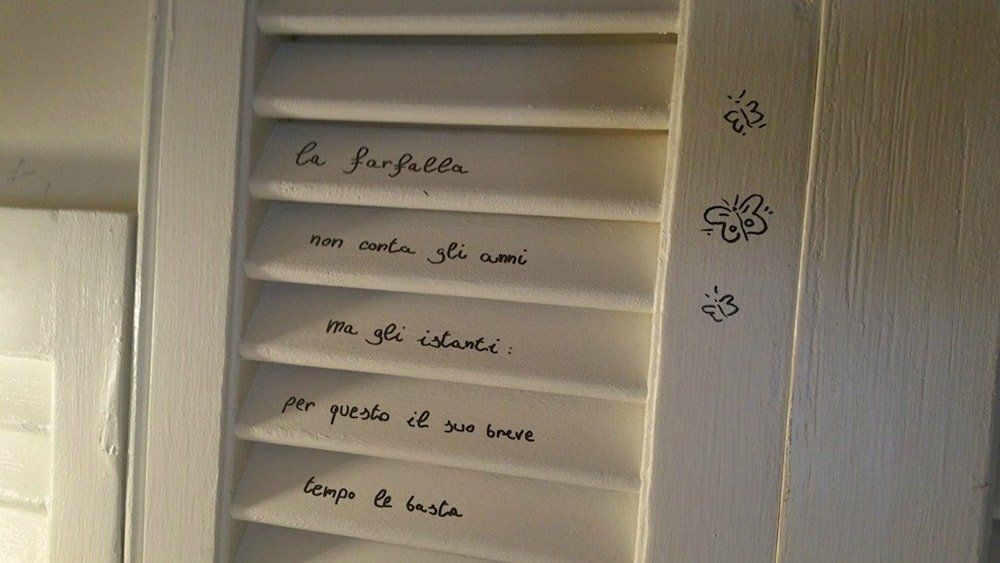 la farfalla
non conta gli anni
ma gli istanti:
per questo il suo breve
tempo le basta